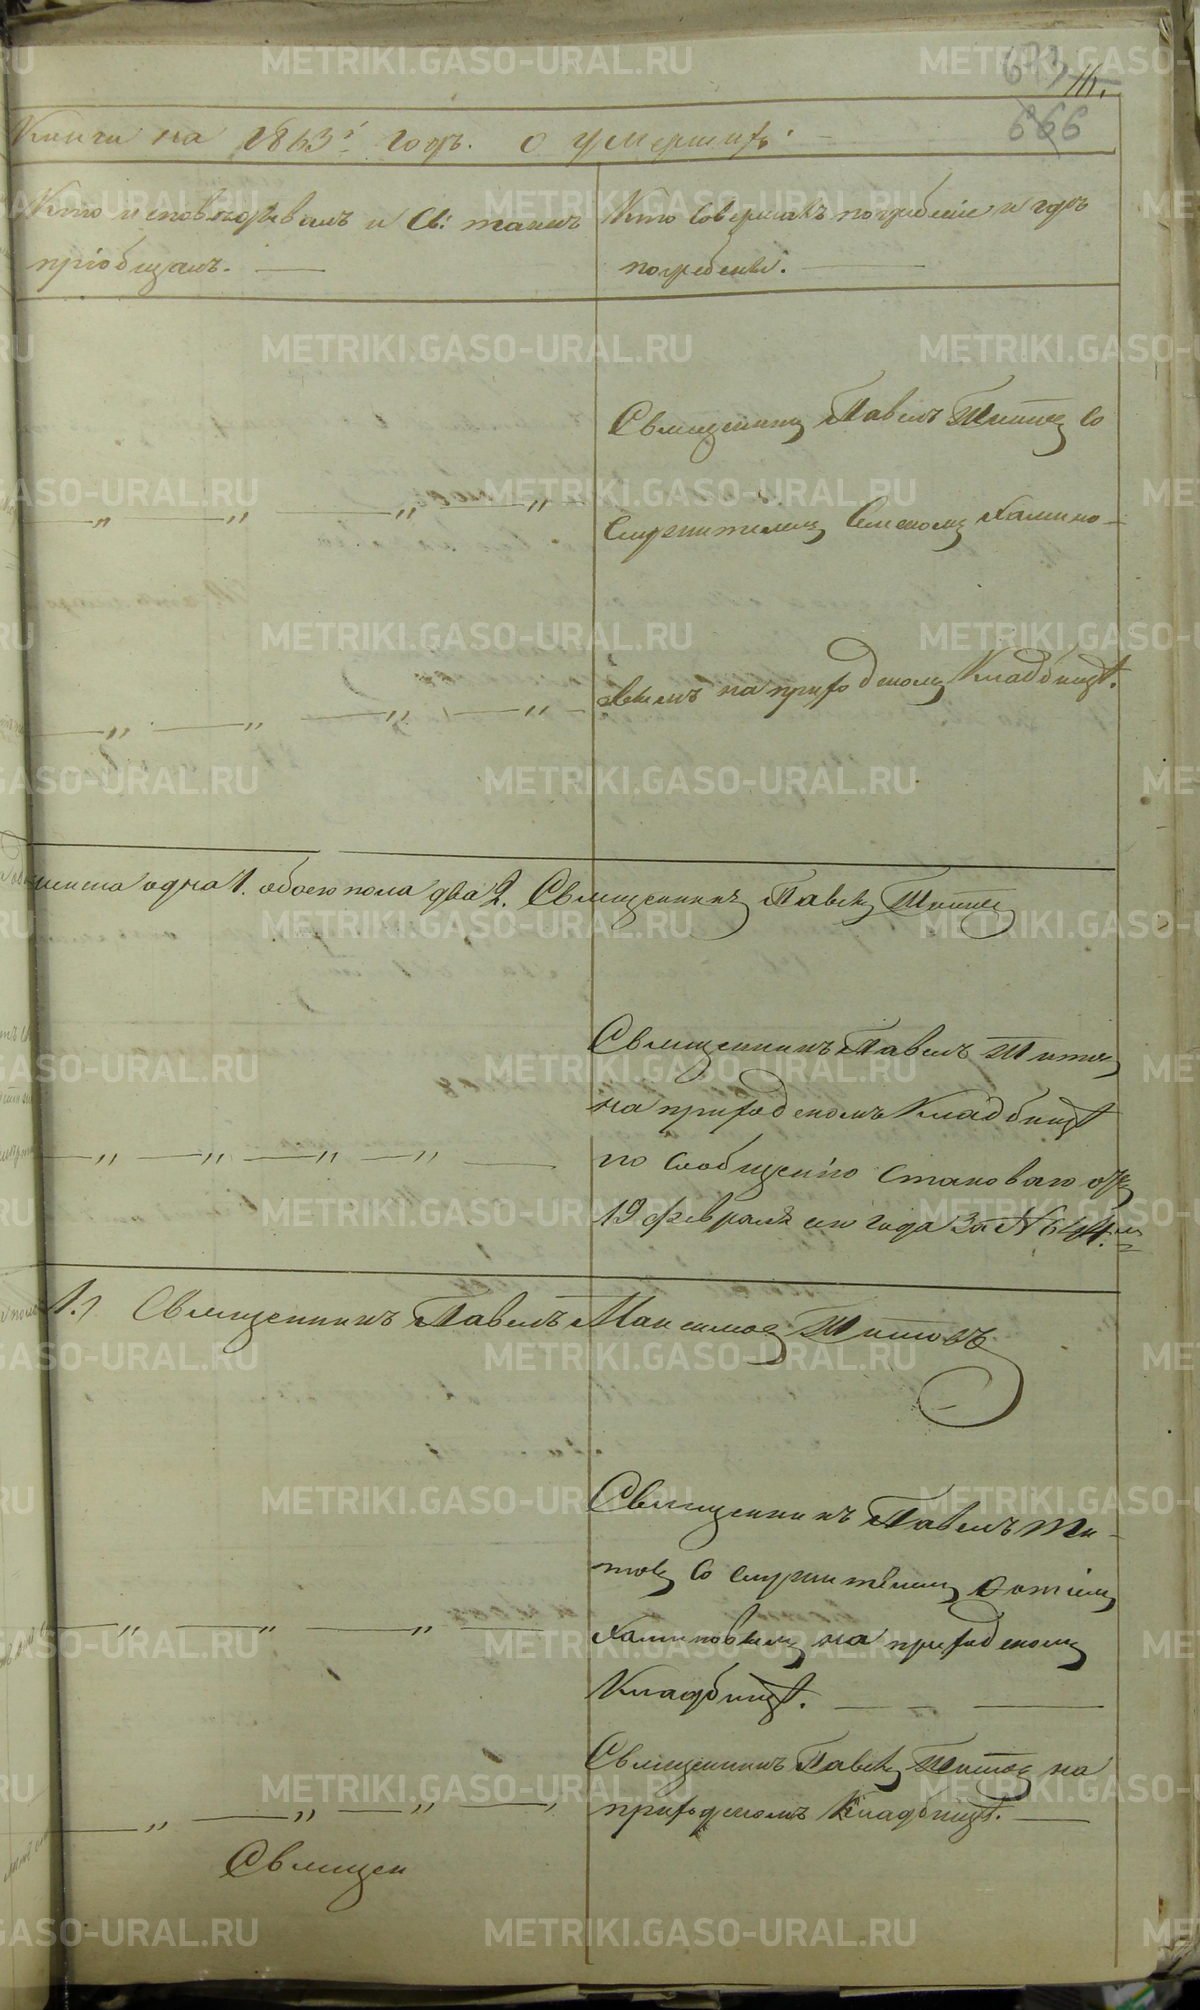 693 16.
666
Книги на 1863й годъ. О умершихъ.
Кто исповѣдывалъ и Св: таинъ
пріобщалъ.
Кто совершалъ погребеніе и гдѣ
погребены.
Священникъ Павелъ Титовъ со
служителемъ Калино-
вымъ на приходскомъ Кладбищѣ.
женска одна 1. обоего пола два 2. Священникъ Павелъ Титовъ
Священникъ Павелъ Титовъ
на приходскомъ Кладбищѣ
по сообщенію Становаго
19 февраля сего года за №
1.) Священникъ Павелъ Максимовъ Титовъ
Священникъ Павелъ Ти-
товъ со служителемъ
Калиновымъ на приходскомъ
Кладбищѣ.
Священникъ Павелъ Титовъ на
приходскомъ Кладбищѣ.
Священ
METRIKI.GASO-URAL.RU